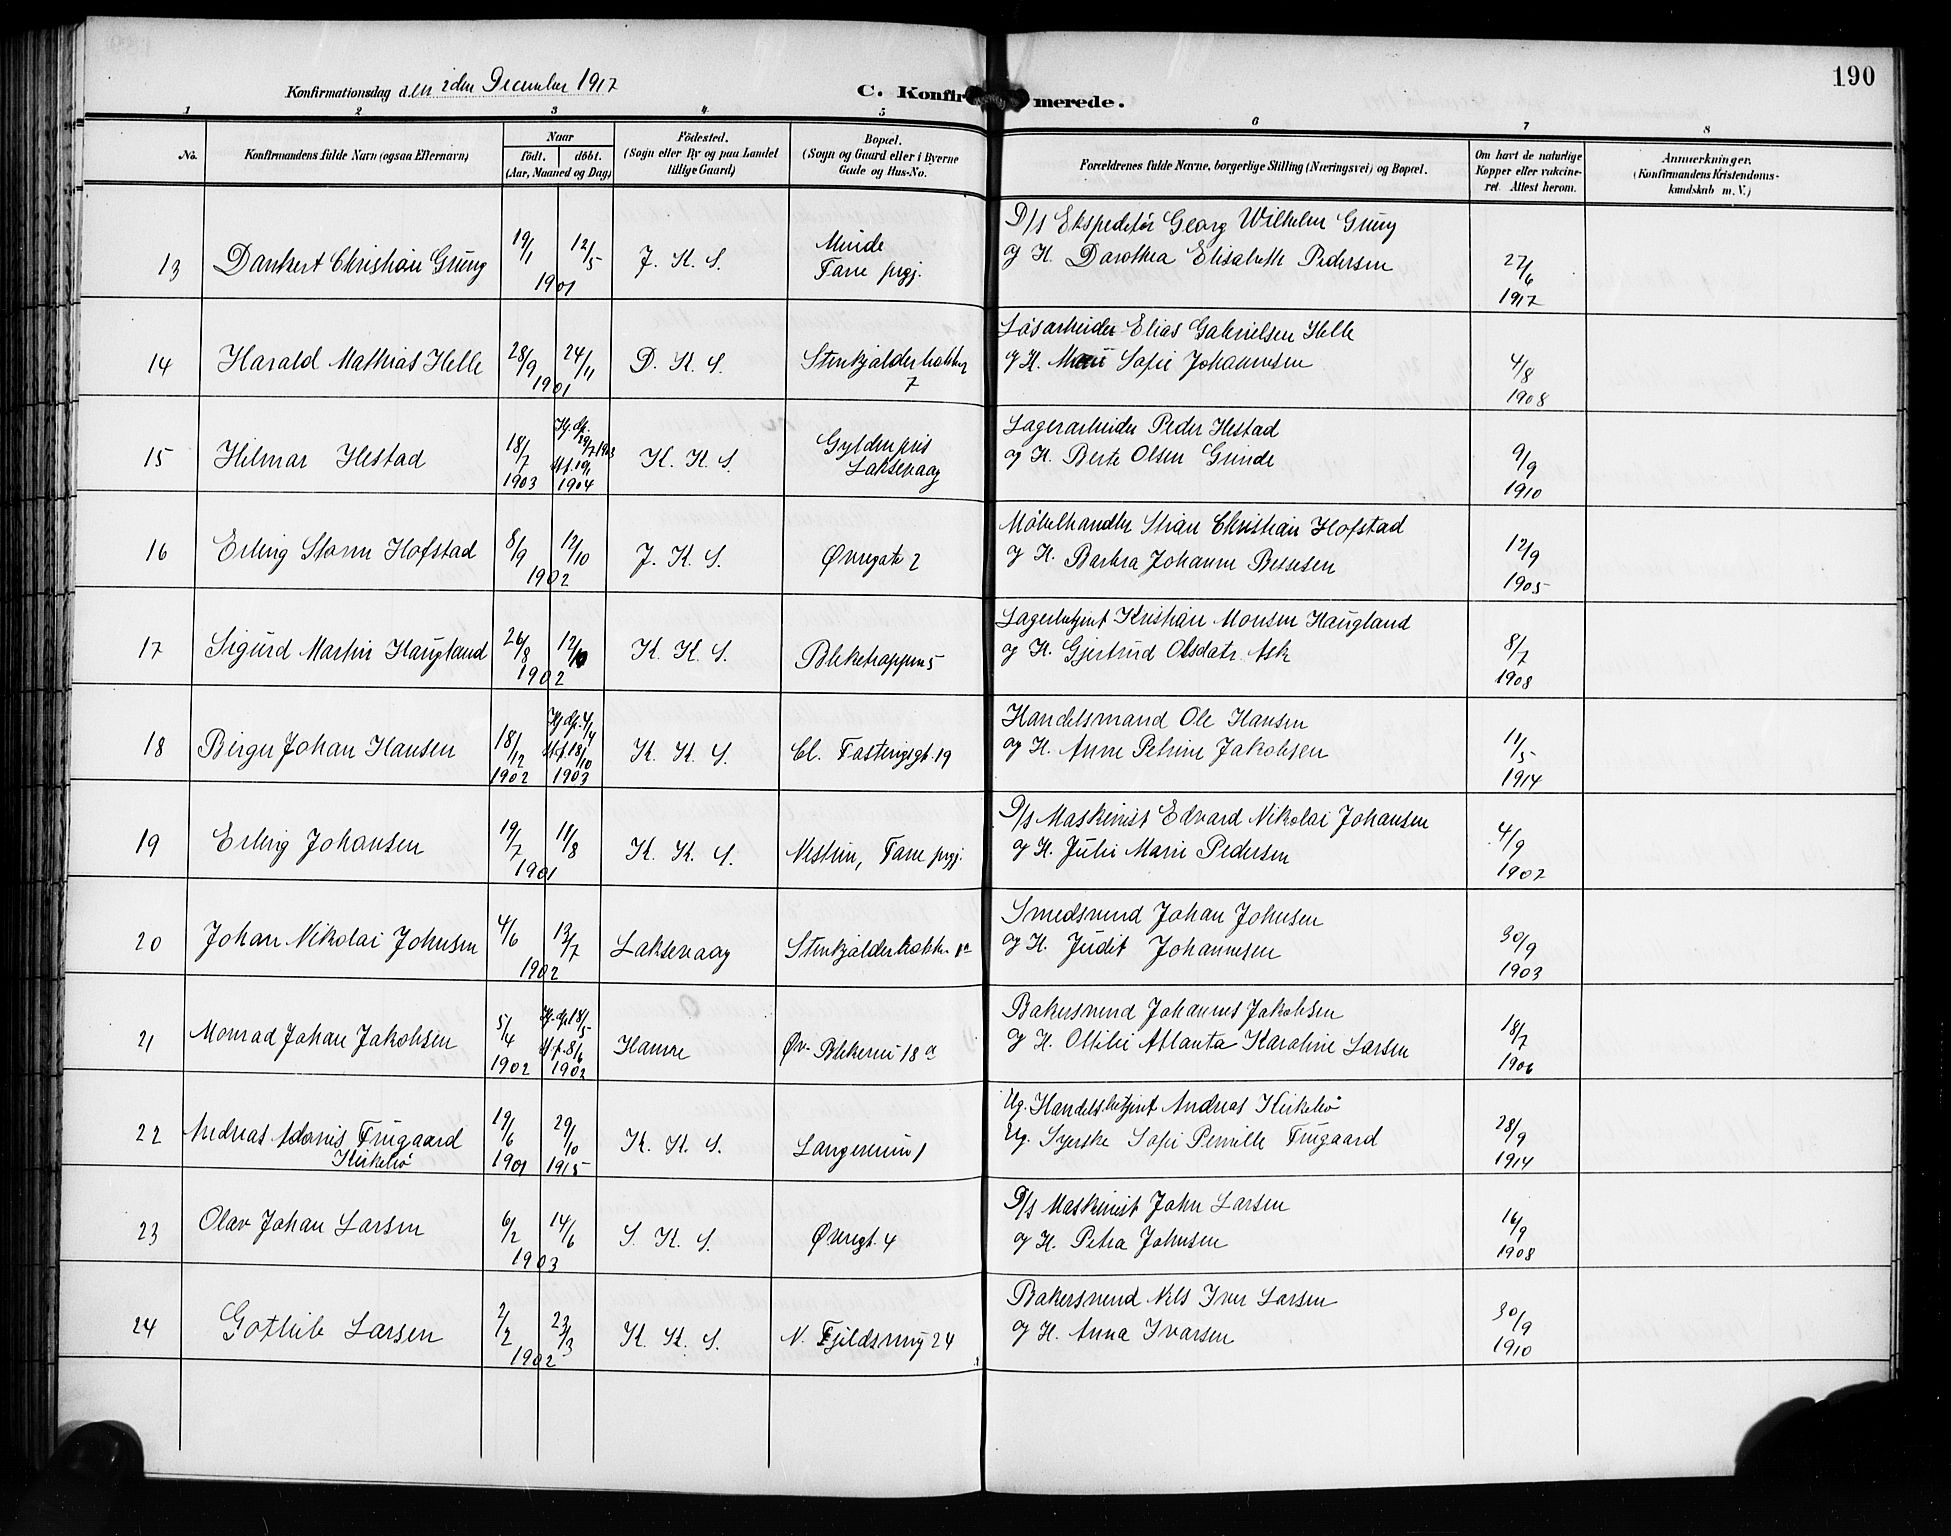 190
Konfirmationsdag den 2den December 1917
C. Konfirmerede.
1 2 3 4 5 6 7 8
No.
Konfirmandens fulde Navn (ogsaa Efternavn)
Naar
födt. döbt.
(Aar, Maaned og Dag)
Födested.
(Sogn eller By og paa Landet
tillige Gaard)
Bopæl.
(Sogn og Gaard eller i Byerne
Gade og Hus-No.
Forældrenes fulde Navne, borgerlige Stilling (Næringsvei) og Bopæl.
Om havt de naturlige
Kopper eller vaccine-
ret. Attest herom.
Anmærkninger.
(Konfirmandens Kristendoms-
kundskab m. V.)
13 Dankert Christian Grung 19/1 12/5 1901 J. K. S. Minde
Fane prgj.
D/S Ekspeditör Georg Wilhelm Grung
og H. Dorothea Elisabeth Pedersen
27/6
1917
14 Harald Mathias Helle 28/9 24/11 1901 D. K. S. Stenkjælderbakken
7
Lösarbeider Elias Gabrielsen Helle
og H. Marie Sofie Johannesen
4/8
1908
15 Hilmar Hestad 18/7 1903 Hj. dp. 29/7 1903
St. f. 19/1 1904 K. K. S. Gyldenpris
Laksevaag
Lagerarbeider Peder Hestad
og H. Berte Olsen Grinde
9/9
1910
16 Erling Storm Hofstad 8/9 12/10 1902 J. K. S. Øvregate 2
Möbelhandler Stian Christian Hofstad
og H. Barbra Johanne Bessesen
12/9
1905
17 Sigurd Martin Haugland 26/8 12/10 1902 K. K. S. Bleketrappen 5
Lagerbetjent Kristian Monsen Haugland
og H. Gjertrud Olsdatr. Ask
8/7
1908
18 Birger Johan Hansen 18/12 1902 Hj. dp. 4/1
St. f. 18/10 1903 K. K. S. Cl. Fastingsgt. 19
Handelsmand Ole Hansen
og H. Anne Petrine Jakobsen
11/5
1914
19 Erling Johansen 19/7 11/8 1901 K. K. S. Nesttun, Fane prgj.
D/S Maskinist Edvard Nikolai Johansen
og H. Julie Marie Pedersen
4/9
1907
20 Johan Nikolai Johnsen 4/6 13/7 1902 Laksevaag Stenkjælderbakken 1a
Smedsvend Johan Johnsen
og H. Judit Johannesen
30/9
1903
21 Monrad Johan Jakobsen 5/4 1902 Hj. dp. 18/5
St. f. 8/6 1902 Hamre Øv. Blekevei 18 a
Bakersvend Johannes Jakobsen
og H. Ottilie Atlanta Karoline Larsen
18/7
1906
22 Andreas Adonis Frugaard
Kirkebö 19/6 1901 29/10 1915 K. K. S. Langeveien 1
Ug. Handelsbetjent Andreas Kirkebö
Ug. Syerske Sofie Pernille Frugaard
28/9
1914
23 Olav Johan Larsen 6/2 14/6 1903 S. K. S. Øvregt. 4
D/S Maskinist John Larsen
og H. Petra Johnsen
16/9
1908
24 Gotlieb Larsen 2/2 23/3 1902 K. K. S. N. Fjeldsmug 24
Bakersvend Nels Iver Larsen
og H. Anna Ivarsen
30/9
1910